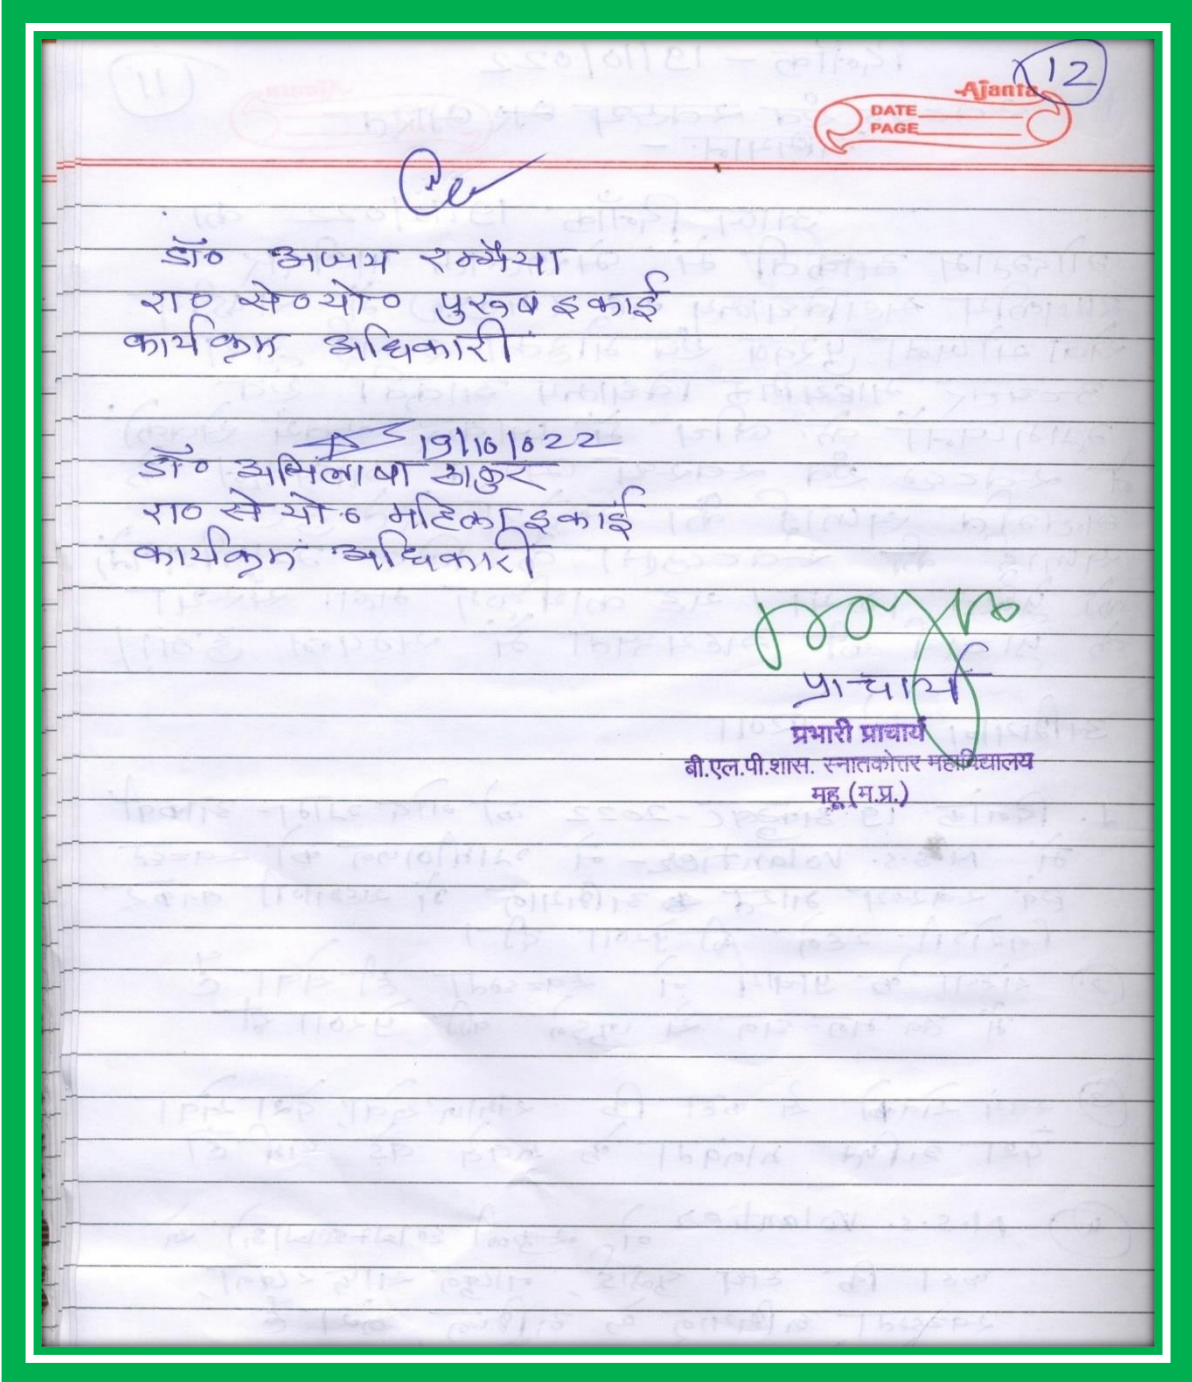 12
Ajanta
DATE
PAGE
डॉ० अजय
रा० से० यो० पुरूष इकाई
कार्यक्रम अधिकारी
19/10/022
डॉ० अभिलाषा ठाकुर
रा० से यो० महिला इकाई
कार्यक्रम अधिकारी
प्राचार्य
प्रभारी प्राचार्य
बी.एल.पी.शास. स्नातकोत्तर महाविद्यालय
महू (म.प्र.)